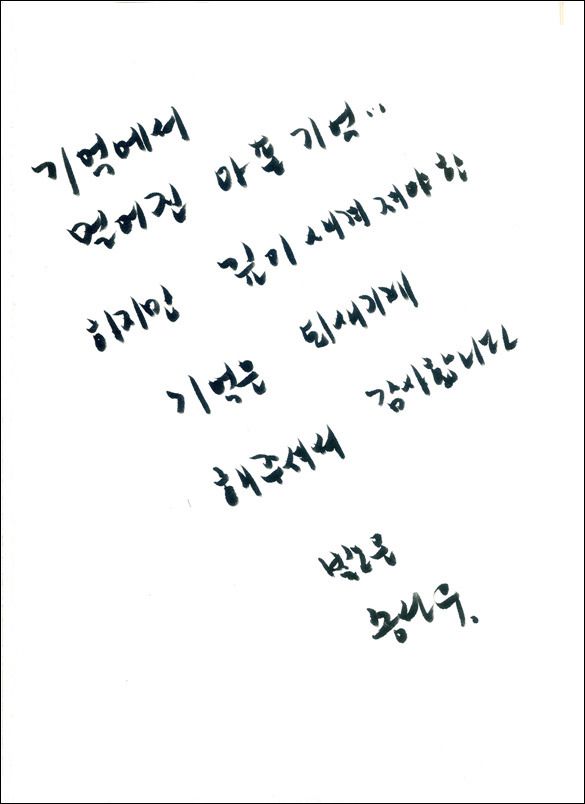 기억에서
멀어진 아픈 기억..
하지만 깊이 새겨져야 할
기억을 되새기게
해주셔서 감사합니다